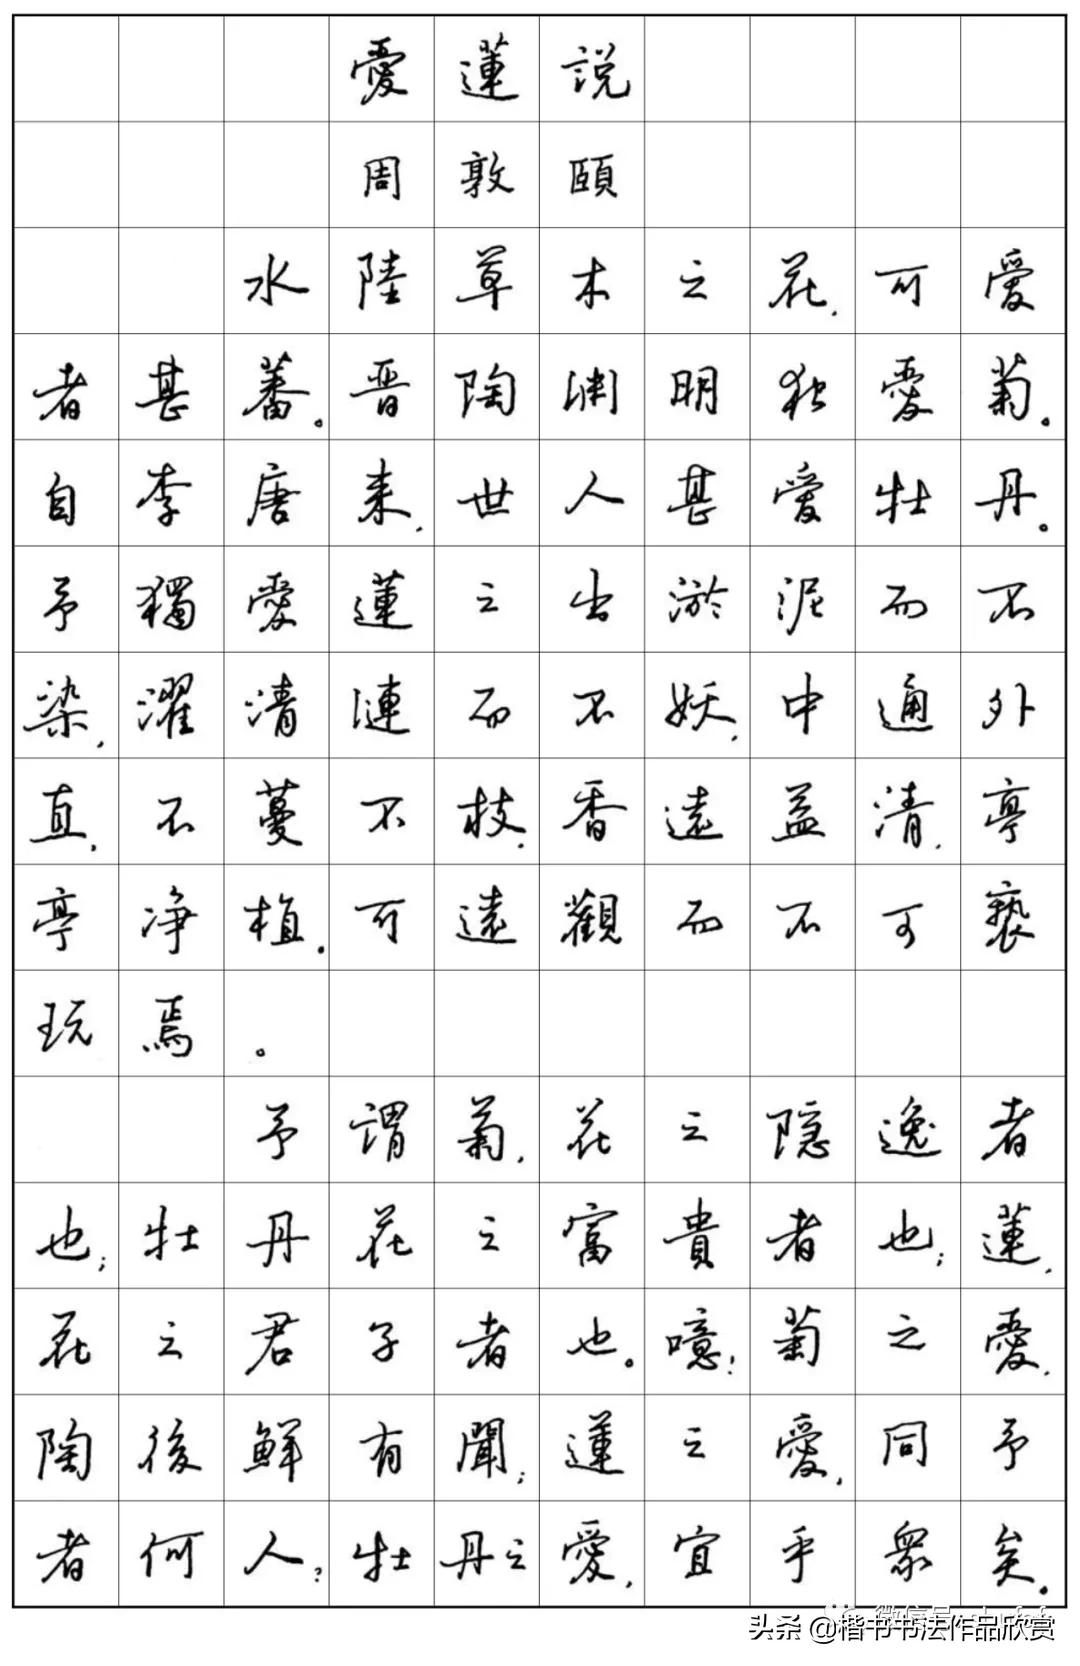 愛蓮説
周敦頤
水陸草木之花，可愛
者甚蕃。晋陶渊明独愛菊。
自李唐来，世人甚愛牡丹。
予獨愛蓮之出淤泥而不
染，濯清漣而不妖，中通外
直，不蔓不枝，香遠益清，亭
亭净植。可遠觀而不可褻
玩焉。
予謂菊，花之隠逸者
也；牡丹花之富貴者也；蓮，
花之君子者也。噫！菊之愛，
陶後鮮有聞；蓮之愛，同予
者何人？牡丹之愛，宜乎衆矣。
头条 @楷书书法作品欣赏